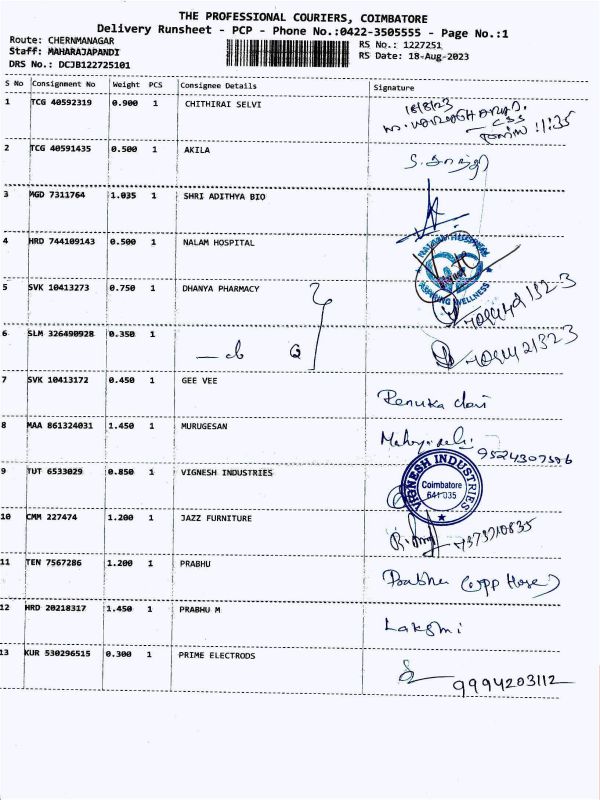 THE PROFESSIONAL COURIERS, COIMBATORE
Delivery Runsheet - PCP - Phone No.:0422-3505555 - Page No.:1
Route: CHERNMANAGAR
RS No.: 1227251
Staff: MAHARAJAPANDI
RS Date: 18-Aug-2023
DRS No.: DCJB122725101
S No Consignment No Weight PCS Consignee Details Signature
1 TCG 40592319 0.900 1 CHITHIRAI SELVI
18/8/23
11:35
2 TCG 40591435 0.500 1 AKILA
3 MGD 7311764 1.035 1 SHRI ADITHYA BIO
4 HRD 744109143 0.500 1 NALAM HOSPITAL
NALAM HOSPITAL
ASPIRING WELLNESS
5 SVK 10413273 0.750 1 DHANYA PHARMACY
6 SLM 326490928 0.350 1
7 SVK 10413172 0.450 1 GEE VEE Renuka devi
8 MAA 861324031 1.450 1 MURUGESAN
9524307586
9 TUT 6533029 0.850 1 VIGNESH INDUSTRIES
VIGNESH INDUSTRIES
Coimbatore
641 035
10 CMM 227474 1.200 1 JAZZ FURNITURE
11 TEN 7567286 1.200 1 PRABHU Prabhu (opp House)
12 HRD 20218317 1.450 1 PRABHU M Lakshmi
13 KUR 530296515 0.300 1 PRIME ELECTRODS
9994203112